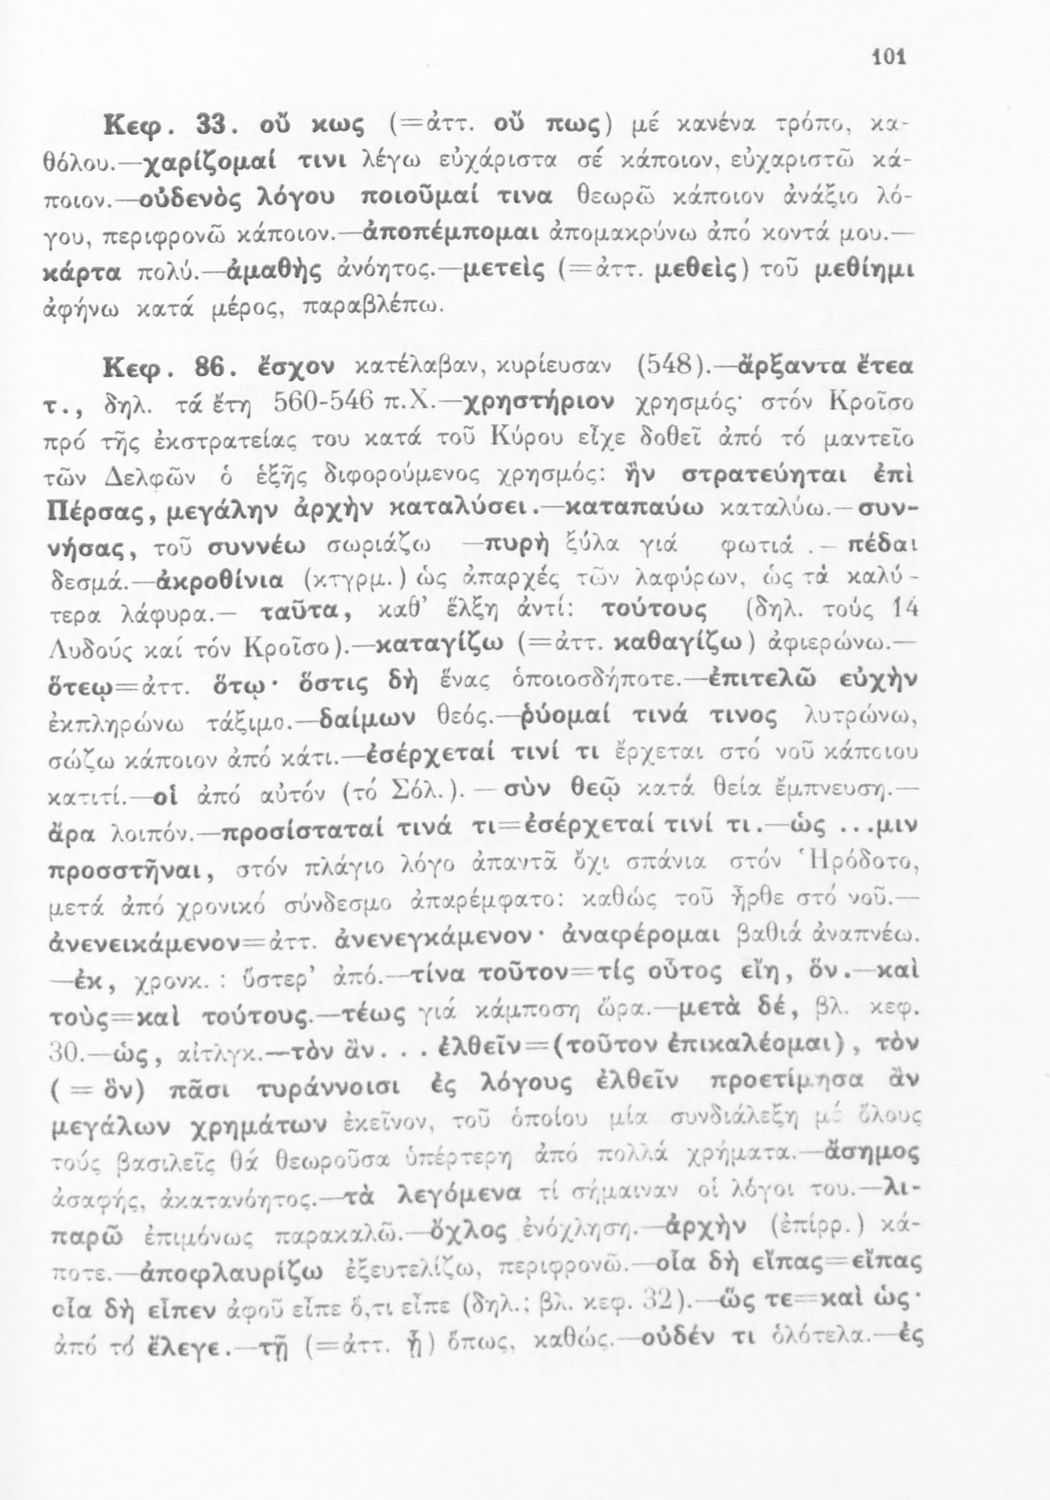 101
Κεφ. 33. οὔ κως (=ἀττ. οὔ πως) μέ κανένα τρόπο, κα-
θόλου.—χαρίζομαί τινι λέγω εὐχάριστα σέ κάποιον, εὐχαριστῶ κά-
ποιον.—οὐδενὸς λόγου ποιοῦμαί τινα θεωρῶ κάποιον ἀνάξιο λό-
γου, περιφρονῶ κάποιον.—ἀποπέμπομαι ἀπομακρύνω ἀπό κοντά μου.—
κάρτα πολύ.—ἀμαθὴς ἀνόητος.—μετεὶς (=ἀττ. μεθεὶς) τοῦ μεθίημι
ἀφήνω κατά μέρος, παραβλέπω.
Κεφ. 86. ἔσχον κατέλαβαν, κυρίευσαν (548).—ἄρξαντα ἔτεα
τ., δηλ. τά ἔτη 560-546 π.Χ.—χρηστήριον χρησμός· στόν Κροῖσο
πρό τῆς ἐκστρατείας του κατά τοῦ Κύρου εἶχε δοθεῖ ἀπό τό μαντεῖο
τῶν Δελφῶν ὁ ἑξῆς διφορούμενος χρησμός: ἢν στρατεύηται ἐπὶ
Πέρσας, μεγάλην ἀρχὴν καταλύσει.—καταπαύω καταλύω.—συν-
νήσας, τοῦ συννέω σωριάζω —πυρὴ ξύλα γιά φωτιά .— πέδαι
δεσμά.—ἀκροθίνια (κτγρμ.) ὡς ἀπαρχές τῶν λαφύρων, ὡς τὰ καλύ-
τερα λάφυρα.— ταῦτα, καθ' ἕλξη ἀντί: τούτους (δηλ. τούς 14
Λυδούς καί τόν Κροῖσο).—καταγίζω (=ἀττ. καθαγίζω) ἀφιερώνω.—
ὅτεῳ=ἀττ. ὅτῳ· ὅστις δὴ ἕνας ὁποιοσδήποτε.—ἐπιτελῶ εὐχὴν
ἐκπληρώνω τάξιμο.—δαίμων θεός.—ῥύομαί τινά τινος λυτρώνω,
σώζω κάποιον ἀπό κάτι.—ἐσέρχεταί τινί τι ἔρχεται στό νοῦ κάποιου
κατιτί.—οἱ ἀπό αὐτόν (τό Σόλ.).—σὺν θεῷ κατά θεία ἔμπνευση.—
ἄρα λοιπόν.—προσίσταταί τινά τι=ἐσέρχεταί τινί τι.—ὡς ...μιν
προσστῆναι, στόν πλάγιο λόγο ἀπαντᾶ ὄχι σπάνια στόν Ἡρόδοτο,
μετά ἀπό χρονικό σύνδεσμο ἀπαρέμφατο: καθώς τοῦ ἦρθε στό νοῦ.—
ἀνενεικάμενον=ἀττ. ἀνενεγκάμενον· ἀναφέρομαι βαθιά ἀναπνέω.
—ἐκ, χρονκ. : ὕστερ' ἀπό.—τίνα τοῦτον=τίς οὗτος εἴη, ὅν.—καὶ
τοὺς=καὶ τούτους.—τέως γιά κάμποση ὥρα.—μετὰ δέ, βλ. κεφ.
30.—ὡς, αἰτλγκ.—τὸν ἂν. . . ἐλθεῖν=(τοῦτον ἐπικαλέομαι), τὸν
(=ὃν) πᾶσι τυράννοισι ἐς λόγους ἐλθεῖν προετίμησα ἂν
μεγάλων χρημάτων ἐκεῖνον, τοῦ ὁποίου μία συνδιάλεξη μέ ὅλους
τούς βασιλεῖς θά θεωροῦσα ὑπέρτερη ἀπό πολλά χρήματα.—ἄσημος
ἀσαφής, ἀκατανόητος.—τὰ λεγόμενα τί σήμαιναν οἱ λόγοι του.—λι-
παρῶ ἐπιμόνως παρακαλῶ.—ὄχλος ἐνόχληση.—ἀρχὴν (ἐπίρρ.) κά-
ποτε.—ἀποφλαυρίζω ἐξευτελίζω, περιφρονῶ.—οἷα δὴ εἴπας=εἴπας
οἷα δὴ εἶπεν ἀφοῦ εἶπε ὅ,τι εἶπε (δηλ.; βλ. κεφ. 32).—ὥς τε=καὶ ὡς·
ἀπό τό ἔλεγε.—τῇ (=ἀττ. ᾗ) ὅπως, καθώς.—οὐδέν τι ὁλότελα.—ἐς